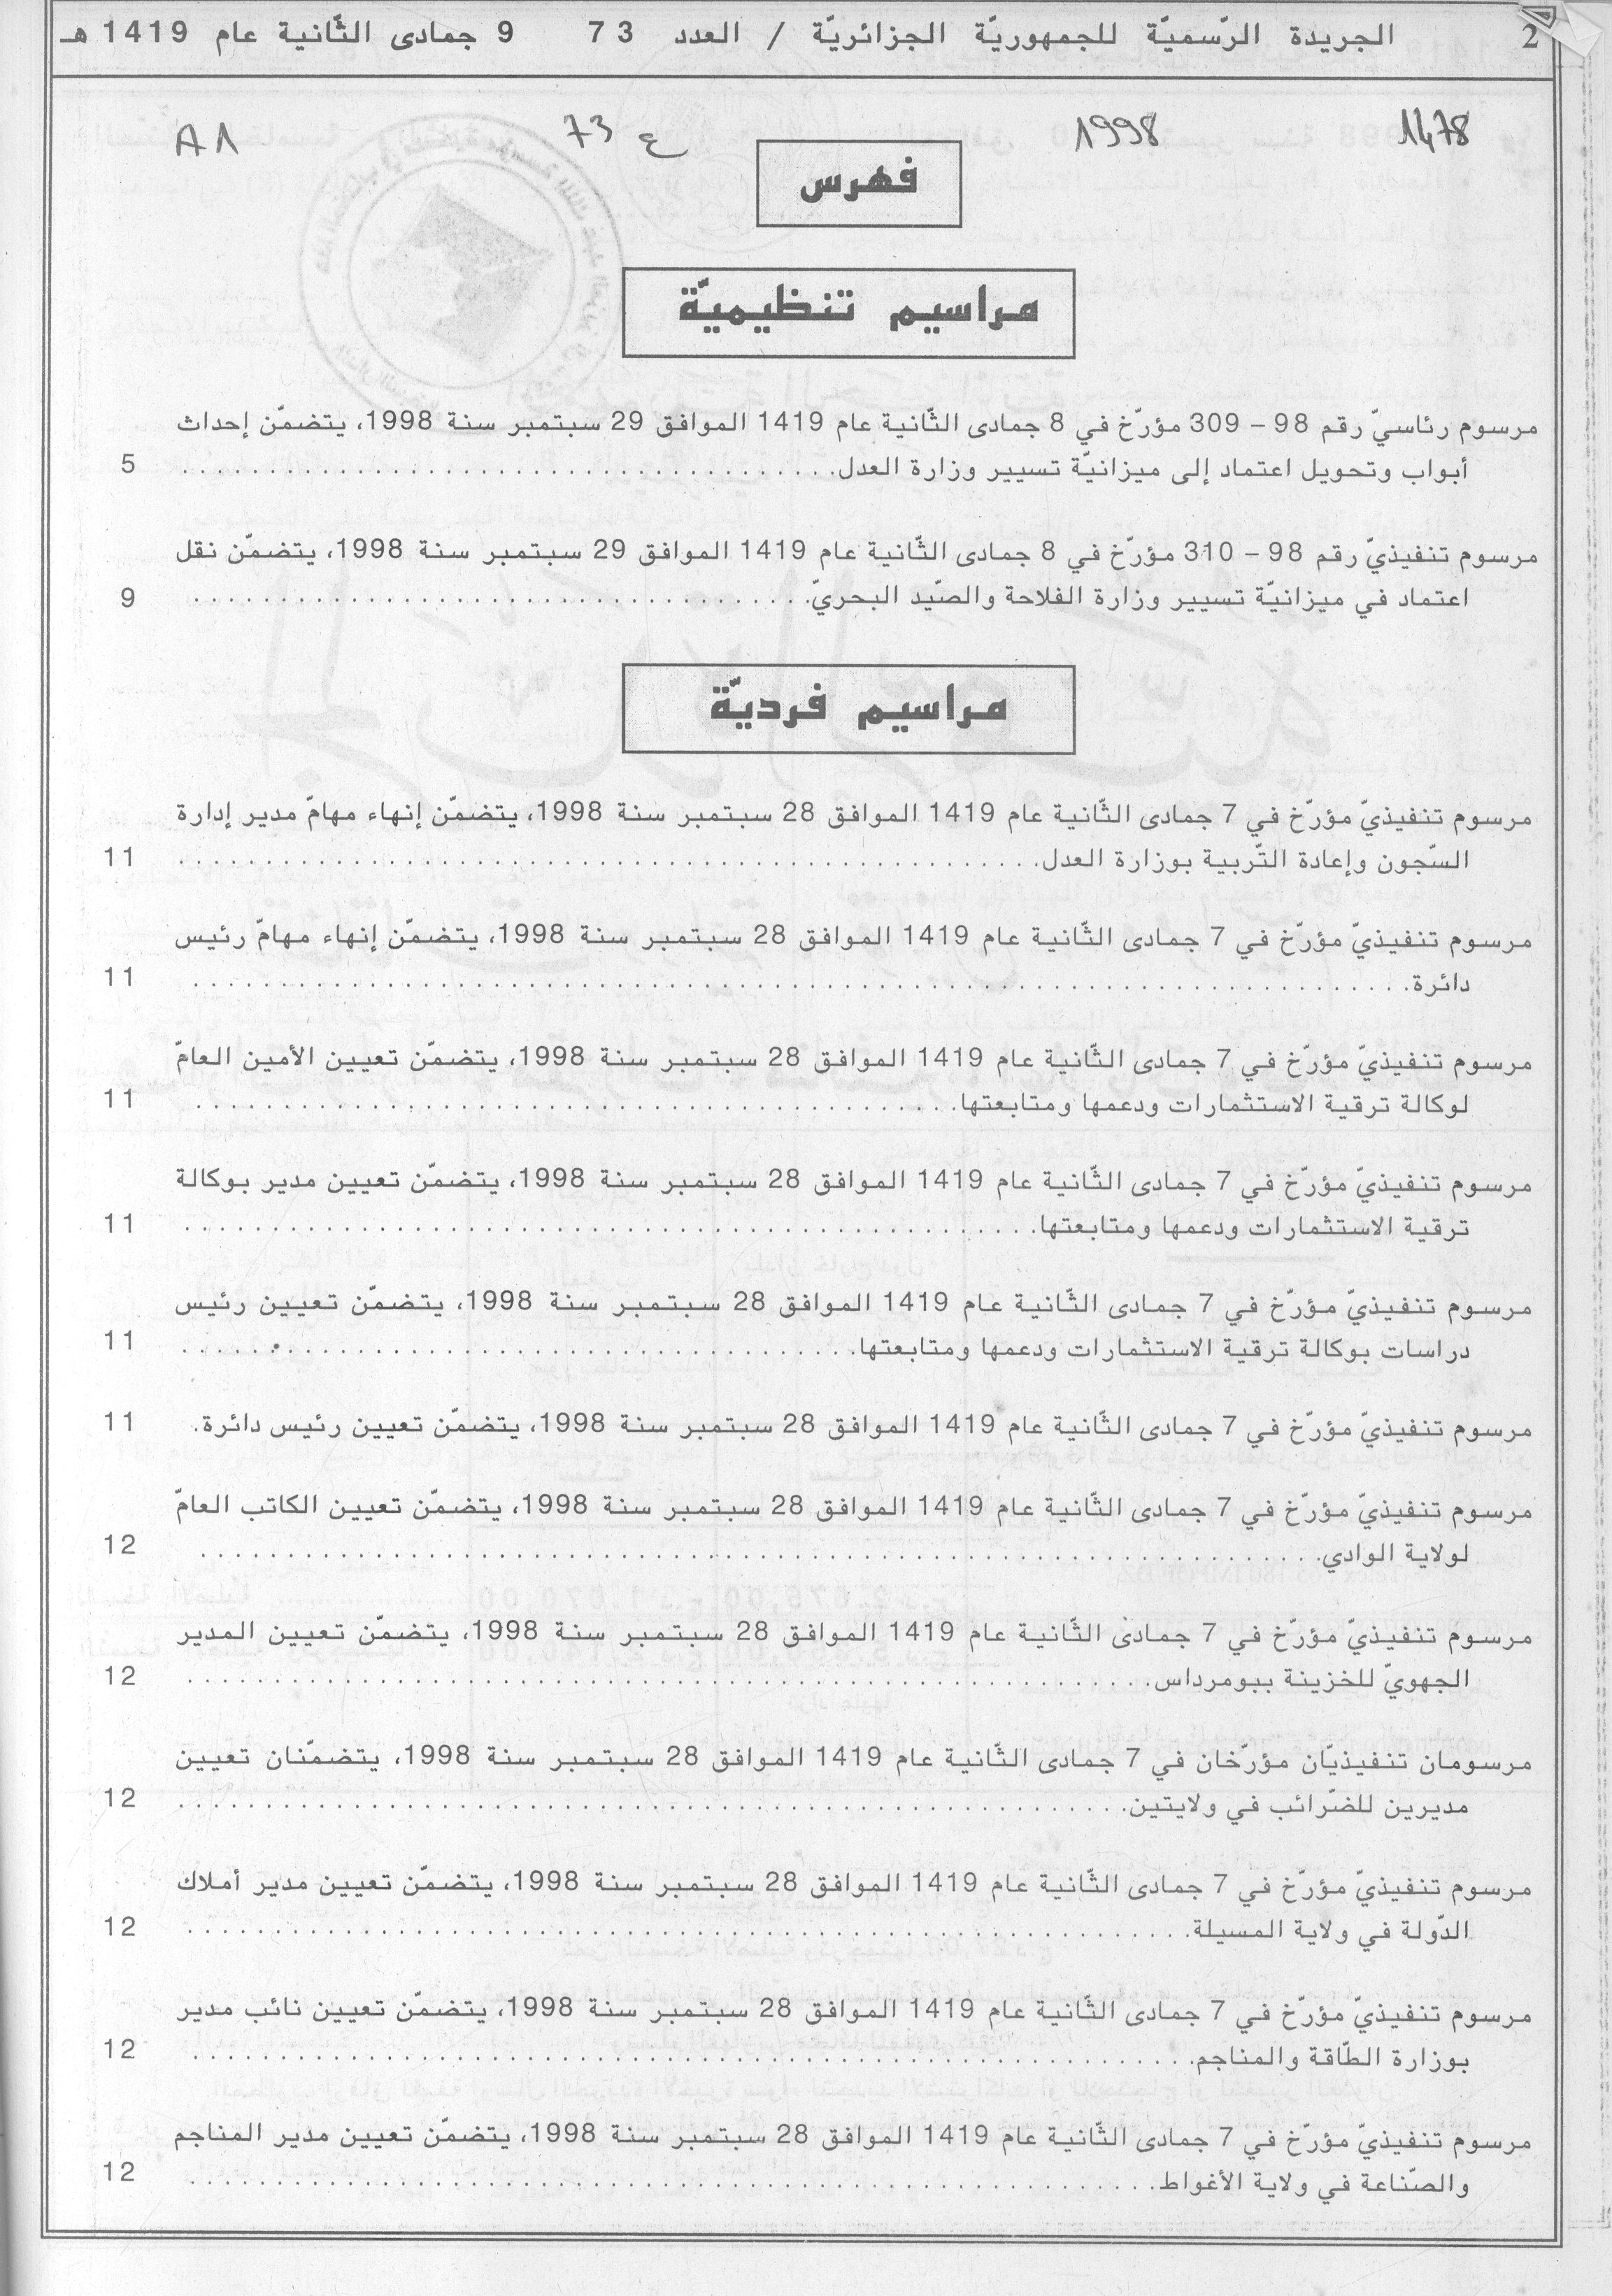 2 الجريدة الرّسميّة للجمهوريّة الجزائريّة / العدد 73 9 جمادى الثّانية عام 1419 هـ
1478 1998 ع 73 A1
فهرس
مراسيم تنظيميّة
مرسوم رئاسيّ رقم 98 – 309 مؤرّخ في 8 جمادى الثّانية عام 1419 الموافق 29 سبتمبر سنة 1998، يتضمّن إحداث
أبواب وتحويل اعتماد إلى ميزانيّة تسيير وزارة العدل. 5
مرسوم تنفيذيّ رقم 98 – 310 مؤرّخ في 8 جمادى الثّانية عام 1419 الموافق 29 سبتمبر سنة 1998، يتضمّن نقل
اعتماد في ميزانيّة تسيير وزارة الفلاحة والصّيد البحريّ. 9
مراسيم فرديّة
مرسوم تنفيذيّ مؤرّخ في 7 جمادى الثّانية عام 1419 الموافق 28 سبتمبر سنة 1998، يتضمّن إنهاء مهامّ مدير إدارة
السّجون وإعادة التّربية بوزارة العدل. 11
مرسوم تنفيذيّ مؤرّخ في 7 جمادى الثّانية عام 1419 الموافق 28 سبتمبر سنة 1998، يتضمّن إنهاء مهامّ رئيس
دائرة. 11
مرسوم تنفيذيّ مؤرّخ في 7 جمادى الثّانية عام 1419 الموافق 28 سبتمبر سنة 1998، يتضمّن تعيين الأمين العامّ
لوكالة ترقية الاستثمارات ودعمها ومتابعتها. 11
مرسوم تنفيذيّ مؤرّخ في 7 جمادى الثّانية عام 1419 الموافق 28 سبتمبر سنة 1998، يتضمّن تعيين مدير بوكالة
ترقية الاستثمارات ودعمها ومتابعتها. 11
مرسوم تنفيذيّ مؤرّخ في 7 جمادى الثّانية عام 1419 الموافق 28 سبتمبر سنة 1998، يتضمّن تعيين رئيس
دراسات بوكالة ترقية الاستثمارات ودعمها ومتابعتها. 11
مرسوم تنفيذيّ مؤرّخ في 7 جمادى الثّانية عام 1419 الموافق 28 سبتمبر سنة 1998، يتضمّن تعيين رئيس دائرة. 11
مرسوم تنفيذيّ مؤرّخ في 7 جمادى الثّانية عام 1419 الموافق 28 سبتمبر سنة 1998، يتضمّن تعيين الكاتب العامّ
لولاية الوادي. 12
مرسوم تنفيذيّ مؤرّخ في 7 جمادى الثّانية عام 1419 الموافق 28 سبتمبر سنة 1998، يتضمّن تعيين المدير
الجهويّ للخزينة ببومرداس. 12
مرسومان تنفيذيّان مؤرّخان في 7 جمادى الثّانية عام 1419 الموافق 28 سبتمبر سنة 1998، يتضمّنان تعيين
مديرين للضّرائب في ولايتين. 12
مرسوم تنفيذيّ مؤرّخ في 7 جمادى الثّانية عام 1419 الموافق 28 سبتمبر سنة 1998، يتضمّن تعيين مدير أملاك
الدّولة في ولاية المسيلة. 12
مرسوم تنفيذيّ مؤرّخ في 7 جمادى الثّانية عام 1419 الموافق 28 سبتمبر سنة 1998، يتضمّن تعيين نائب مدير
بوزارة الطّاقة والمناجم. 12
مرسوم تنفيذيّ مؤرّخ في 7 جمادى الثّانية عام 1419 الموافق 28 سبتمبر سنة 1998، يتضمّن تعيين مدير المناجم
والصّناعة في ولاية الأغواط. 12